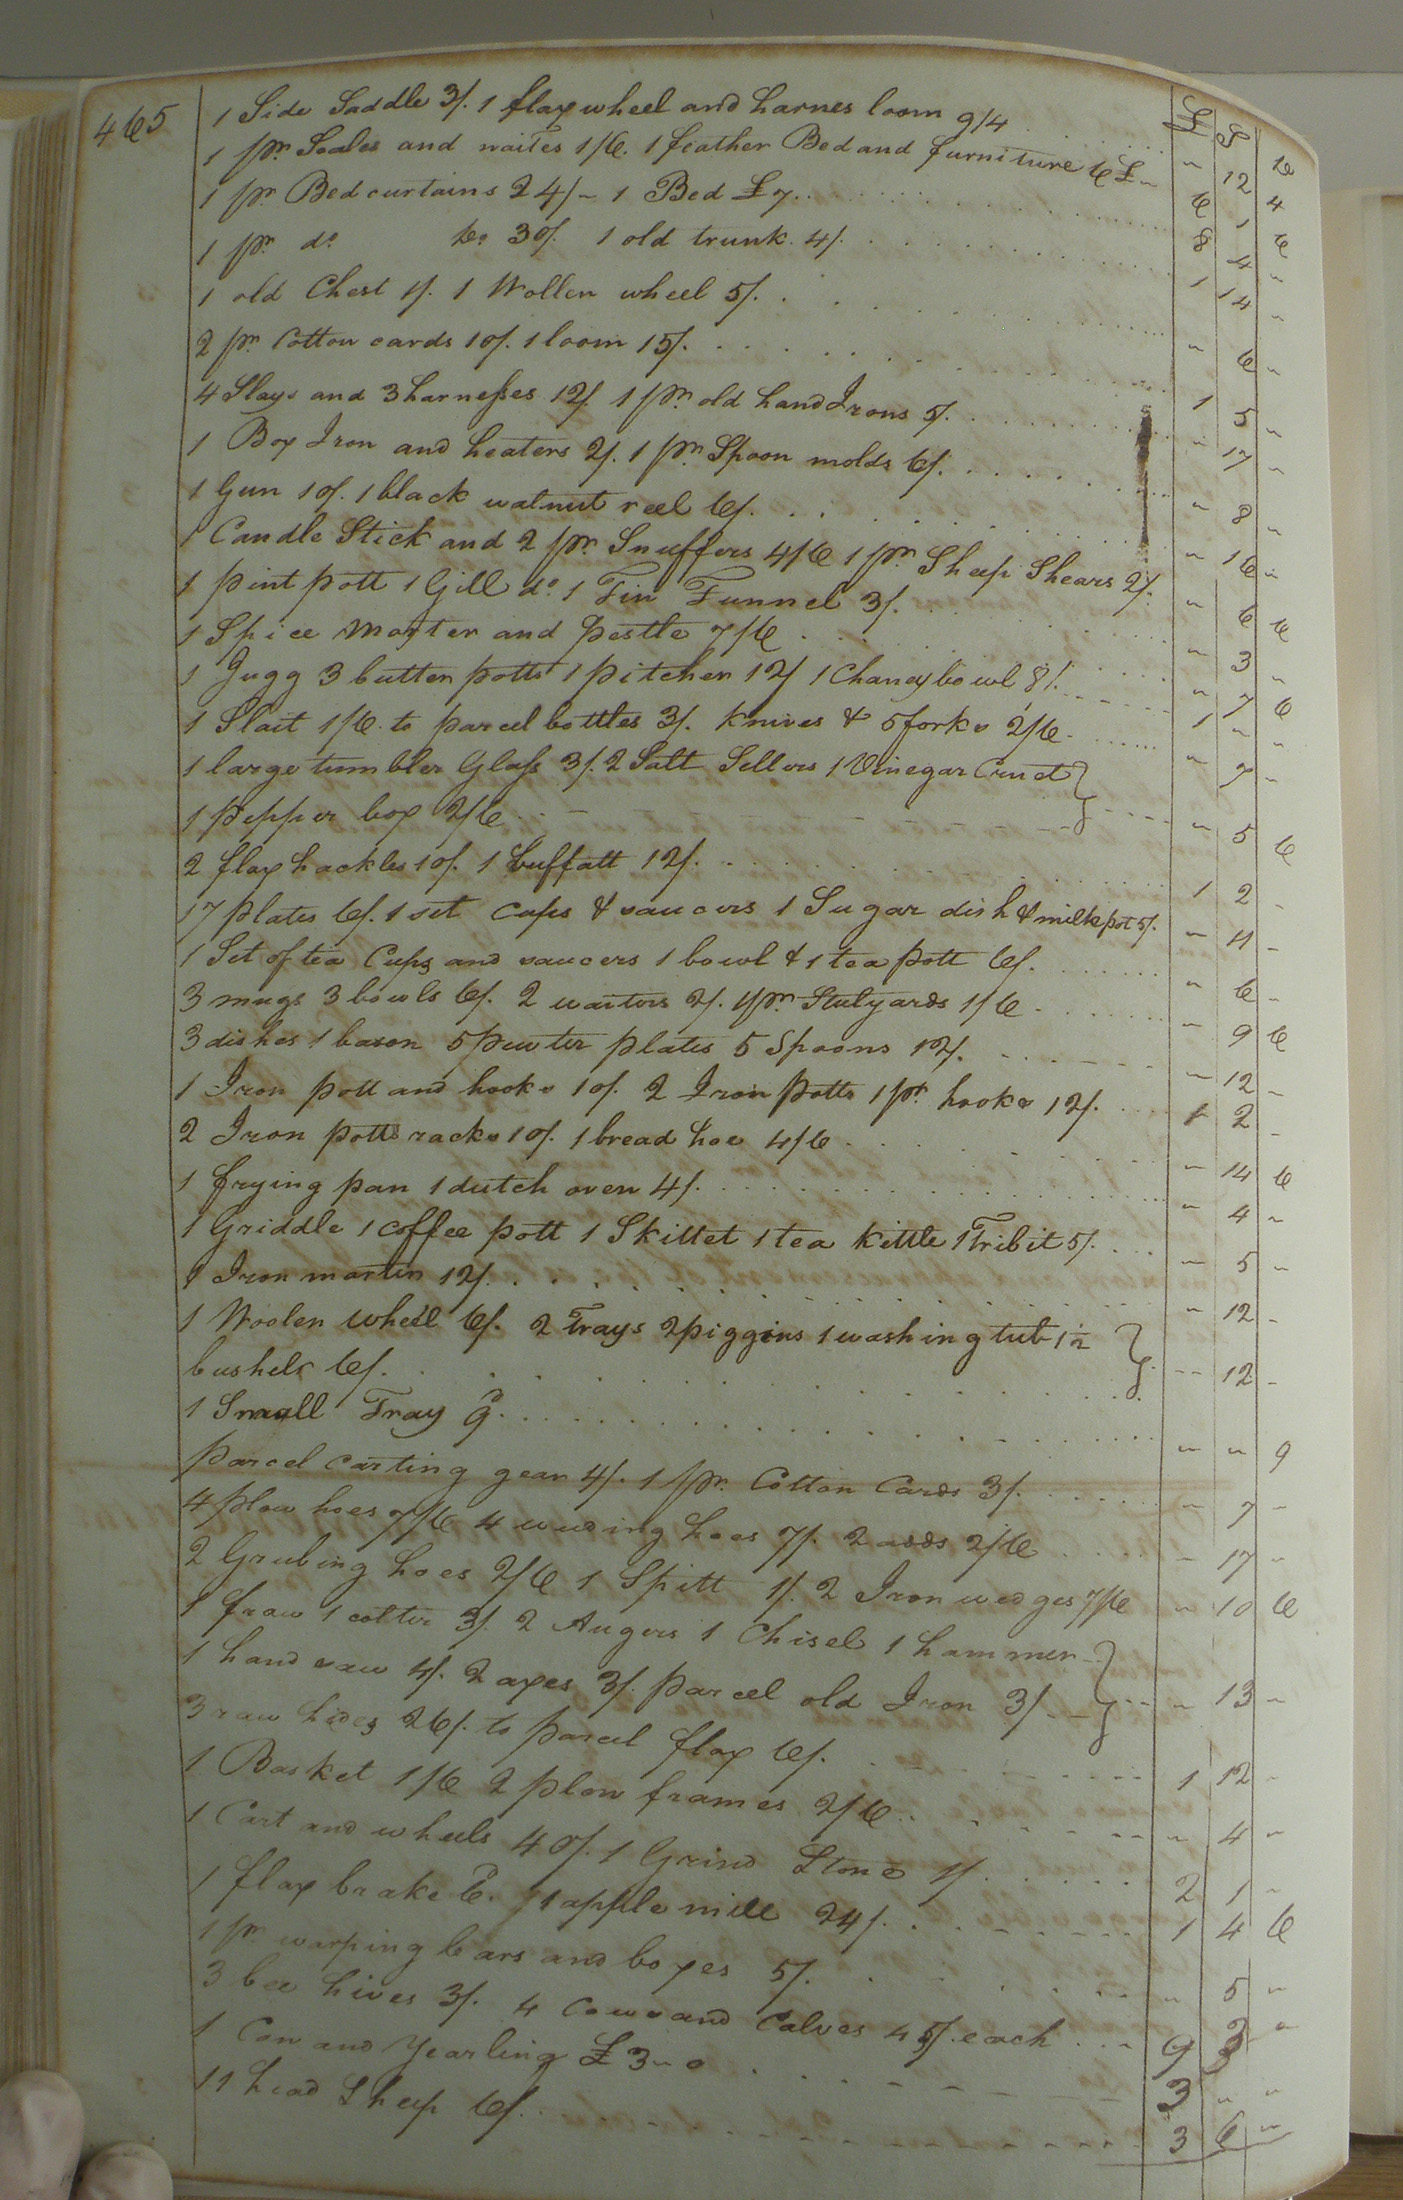 465
£ S D
1 Side Saddle 3/. 1 flax wheel and harnes loom 9/4 " 12 4
1 pr. Scales and waites 1/6. 1 feather Bed and furniture 6 £ 6 1 6
1 pr. Bed curtains 24/- 1 Bed £7. 8 4 "
1 pr. do. Do. 30/. 1 old trunk. 4/. 1 14 "
1 old Chest 1/. 1 Wollen wheel 5/. " 6 "
2 pr. Cotton cards 10/. 1 loom 15/. 1 5 "
4 Slays and 3 harnesses 12/. 1 pr. old hand Irons 5/. " 17 "
1 Box Iron and heaters 2/. 1 pr. Spoon molds 6/. " 8 "
1 Gun 10/. 1 black walnut reel 6/. " 16 "
1 Candle Stick and 2 pr. Snuffers 4/6 1 pr. Sheep Shears 2/. " 6 6
1 pint pott 1 Gill do. 1 Tin Funnel 3/. " 3 "
1 Spice Morter and pestle 7/6 " 7 6
1 Jugg 3 butter potts 1 pitcher 12/ 1 Chaney bowl 8/. 1 " "
1 Slait 1/6. to parcel bottles 3/. Knives & 5 forks 2/6. " 7 "
1 large tumbler Glass 3/. 2 Salt Sellers 1 Vinegar Cruet }
1 pepper box 2/6 " 5 6
2 flax hackles 10/. 1 buffatt 12/. 1 2 "
17 plates 6/. 1 set Cups & saucers 1 Sugar dish & milk pot 5/. " 11 "
1 Set of tea Cups and saucers 1 bowl & 1 tea pott 6/. " 6 "
3 mugs 3 bowls 6/. 2 waitors 2/. 1 pr. Stulyards 1/6 " 9 6
3 dishes 1 bason 5 pewter plates 5 Spoons 12/. " 12 "
1 Iron pott and hooks 10/. 2 Iron potts 1 pr. hooks 12/. 1 2 "
2 Iron potts racks 10/. 1 bread hoe 4/6 " 14 6
1 frying pan 1 dutch oven 4/. " 4 "
1 Griddle 1 coffee pott 1 Skillet 1 tea kittle 1 Tribit 5/. " 5 "
1 Iron martin 12/. " 12 "
1 Woolen wheel 6/. 2 Trays 2 piggins 1 washing tub 1 ½ }
bushels 6/. " 12 "
1 Small Tray 9d. " " 9
parcel carting gear 4/. 1 pr. Cotton Cards 3/. " 7 "
4 plow hoes 7/6 4 weeding hoes 7/. 2 adds 2/6 " 17 "
2 Grubing hoes 2/6 1 Spitt 1/. 2 Iron wedges 7/6 " 10 6
1 fraw 1 colter 3/. 2 Augers 1 Chisel 1 hammer }
1 hand saw 4/. 2 axes 3/. parcel old Iron 3/ " 13 "
3 raw hides 26/. to parcel flax 6/. 1 12 "
1 Basket 1/6 2 plow frames 2/6. " 4 "
1 Cart and wheels 40/. 1 Grind Stone 1/. 2 1 "
1 flax brake 6d. 1 apple mill 24/. 1 4 6
1 pr. warping bars and boxes 5/. " 5 "
3 bee hives 3/. 4 Cows and Calves 45/. each 9 3 "
1 Cow and Yearling £3-0 3 " "
11 head Sheep 6/. 3 6 "